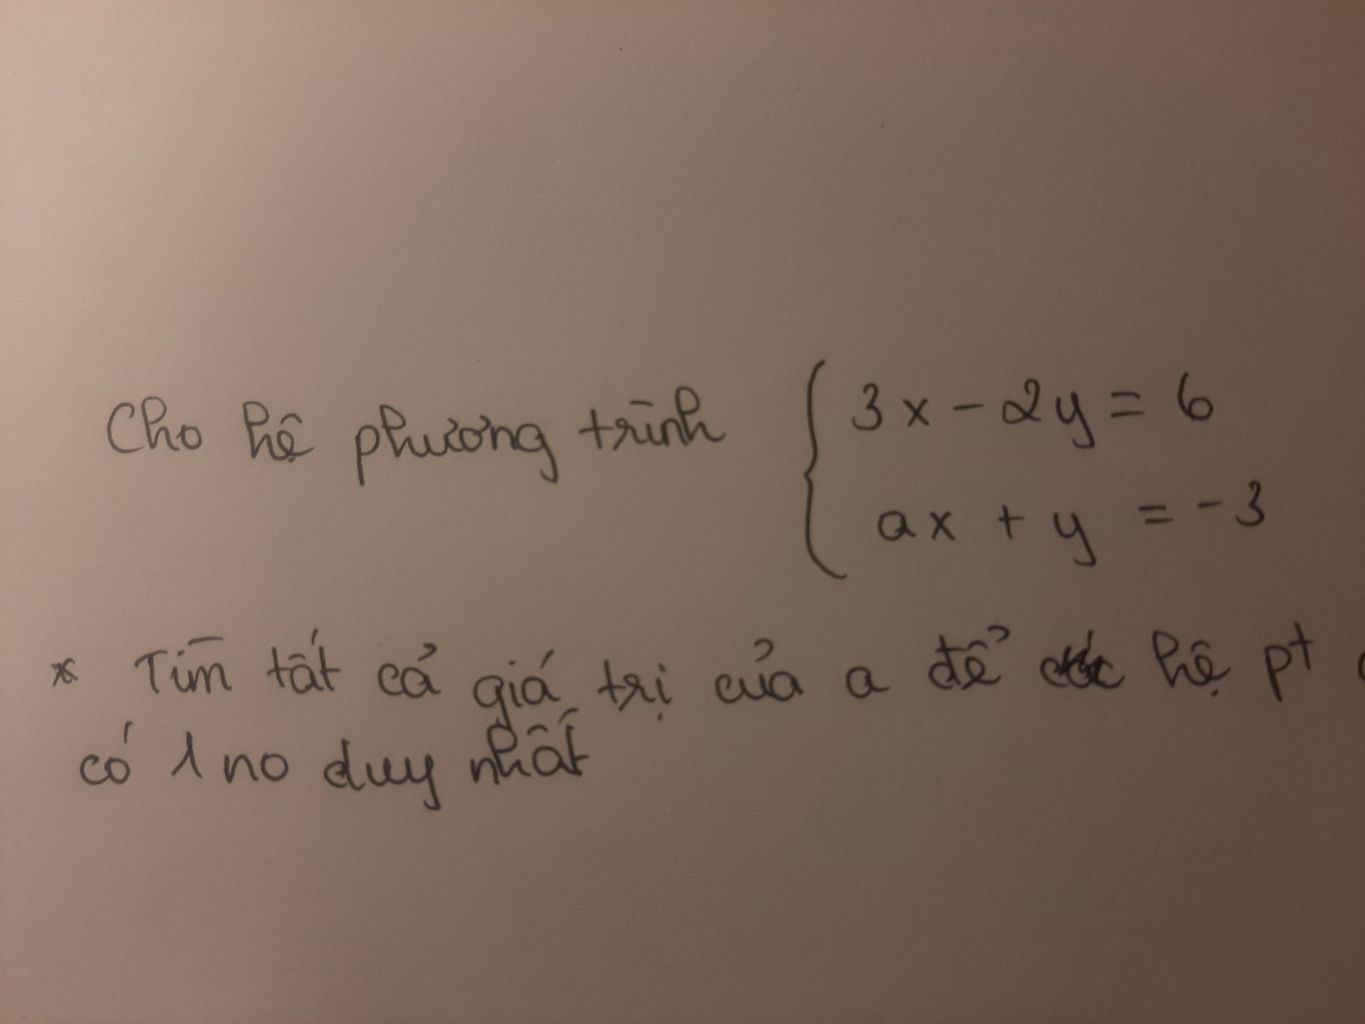 Cho hệ phương trình { 3x - 2y = 6
ax + y = -3
* Tìm tất cả giá trị của a để hệ pt
có 1 no duy nhất